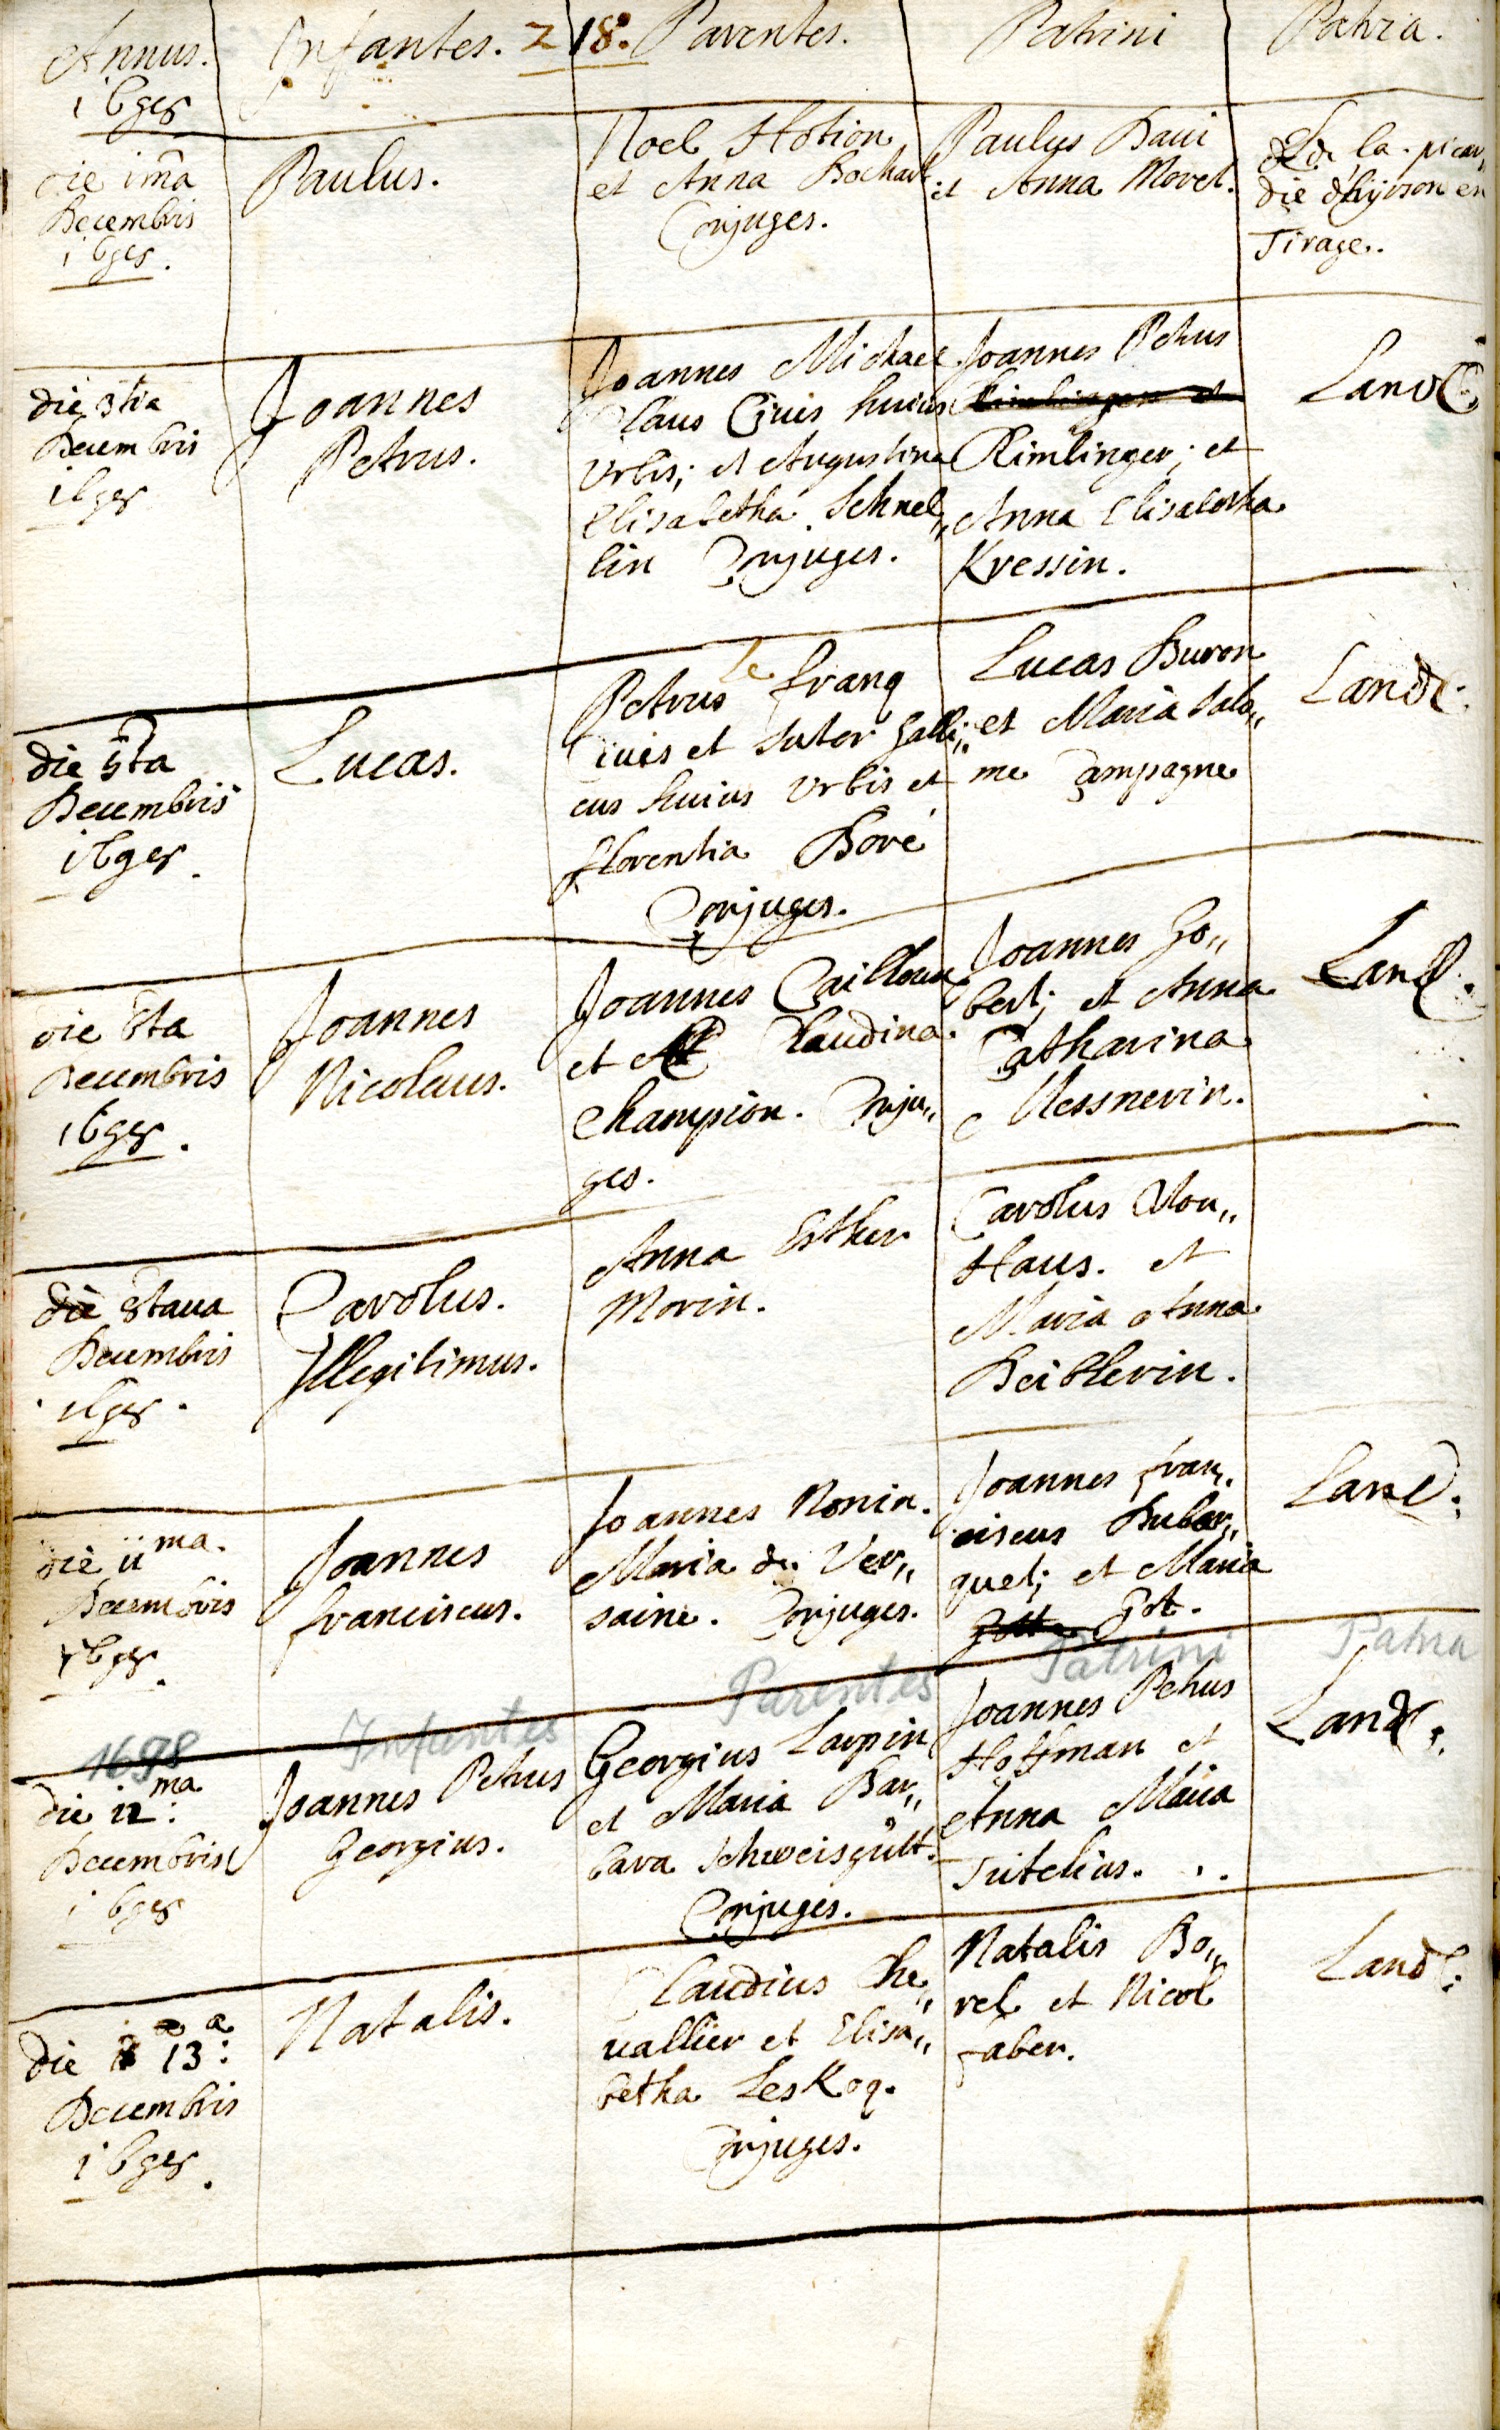 Annus. Infantes. 218. Parentes. Patrini Patria.
1698
die 1ma
Decembris
1698.
Paulus.
Noel Hotion
et Anna Bochart
Conjuges.
Paulus Daui
et Anna Morel.
de la picar„
die
Tirage.
die 3tia
Decembris
1698
Joannes
Petrus.
Joannes Michael
Claus Civis huius
Urbis; et Augustina
Elisabetha Schnel„
lin Conjuges.
Joannes Petrus
Rimlinger; et
Anna Elisabetha
Kressin.
Land:
die 5ta
Decembris
1698.
Lucas.
Petrus le franq
Ciuis et Sutor Galli„
cus huius Urbis et
florentia Boré
Conjuges.
Lucas Buron
et Maria Salo„
me Campagne
Land:
die 6ta
Decembris
1698.
Joannes
Nicolaus.
Joannes Cailloux
et Claudina
Champion. Conju„
ges.
Joannes Go„
bert; et Anna
Catharina
Messnerin.
Land.
die 8taua
Decembris
1698.
Carolus.
Illegitimus.
Anna Esther
Morin.
Carolus Mon„
Haus. et
Maria Anna
Deiblerin.
die 11ma.
Decembris
1698.
Joannes
franciscus.
Joannes Ronin.
Maria de Ver„
saine. Conjuges.
Joannes fran„
ciscus Dubar„
quet; et Maria
Got.
Land:
1698 Infantes Parentes Patrini Patria
die 12ma:
Decembris
1698
Joannes Petrus
Georgius.
Georgius Laupin
et Maria Bar„
bara Schweisgült.
Conjuges.
Joannes Petrus
Hoffman et
Anna Maria
Tuitelius.
Land:
die 13a:
Decembris
1698.
Natalis.
Claudius Che„
uallier et Elisa„
betha LesKoq.
Conjuges.
Natalis Bo„
rel et Nicol
faber.
Land: